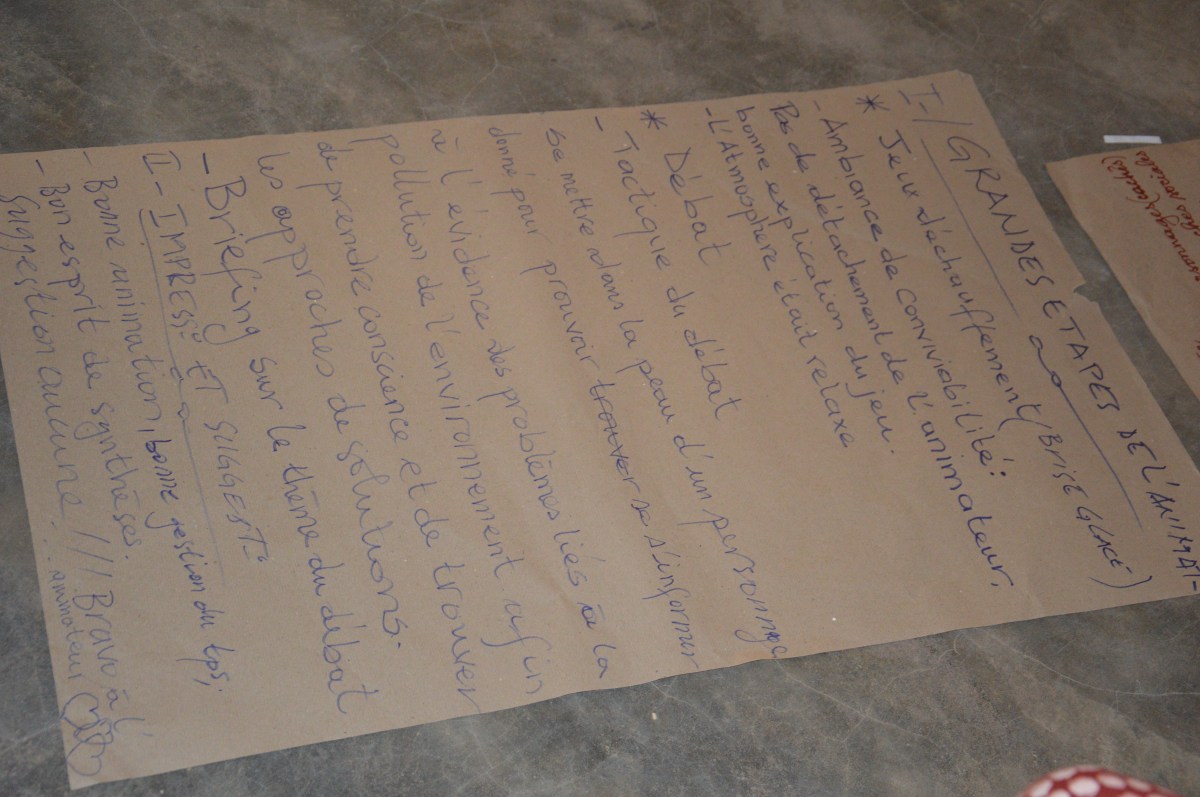 I-/ GRANDES ETAPES DE L'ANIMATI-
* Jeux d'échauffement (BRISE GLACE)
- Ambiance de conviviabilité:
Pas de détachement de l'animateur,
bonne explication du jeu.
- L'Atmosphère était relaxe
* Débat
- Tactique du débat
Se mettre dans la peau d'un personnage
donné pour prouvoir trouver se s'informer
à l'évidence des problèmes liés à la
pollution de l'environnement afin
de prendre conscience et de trouver
les approches de solutions.
- Briefing sur le thème du débat
II- IMPRESS° ET SUGGEST°
- Bonne animation, bonne gestion du tps,
- Bon esprit de synthèses.
Suggestion aucune!... /// Bravo à l'
animateur